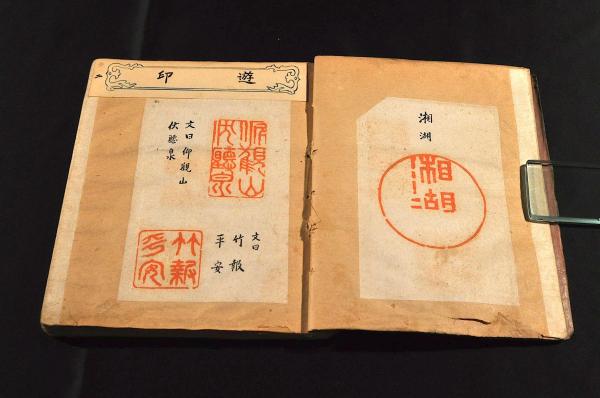 湘湖
湘湖
遊印
二
仰觀山
伏聽泉
文曰仰觀山
伏聽泉
文曰
竹報
平安
竹報
平安